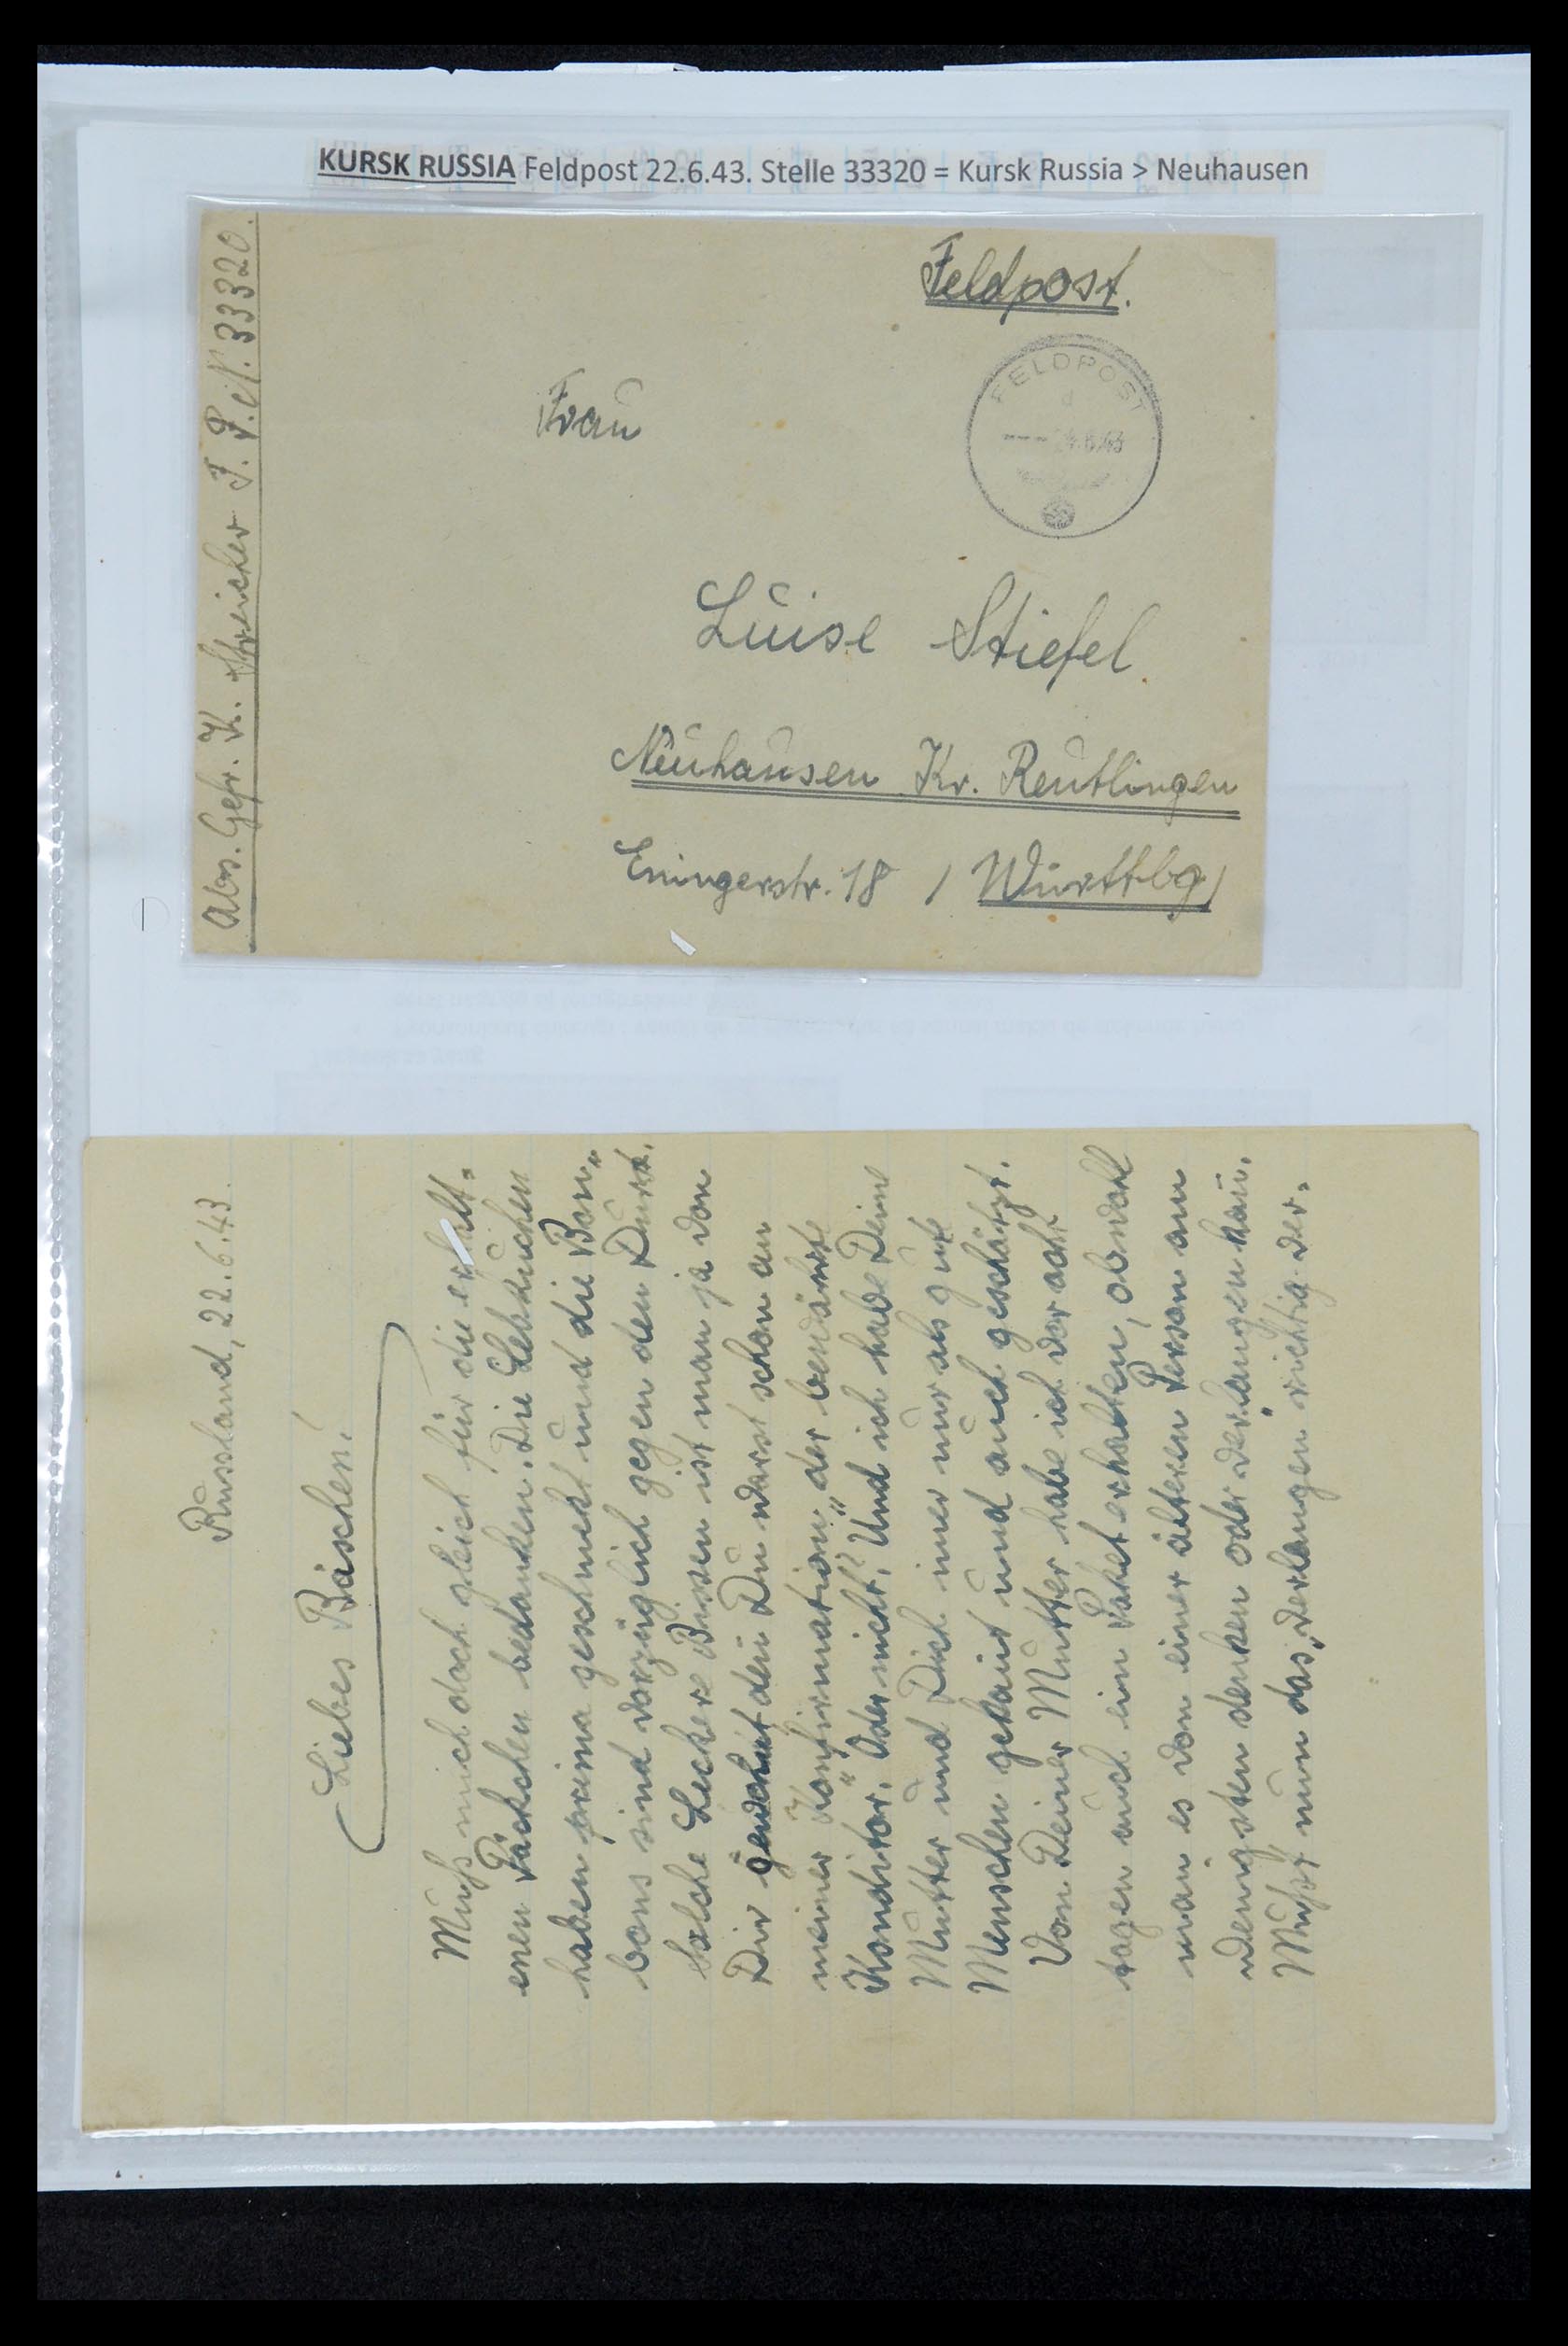 KURSK RUSSIA Feldpost 22.6.43. Stelle 33320 = Kursk Russia > Neuhausen
Abs. Gefr. K. Streicher F. P. N. 33320.
Feldpost.
FELDPOST
.6.43
Frau
Luise Stiefel
Neuhausen Kr. Reutlingen
Eningerstr. 18 / Württbg /
Russland, 22.6.43.
Liebes Bäschen!
Muß mich doch gleich für die erhalt-
enen Päckchen bedanken. Die Lebkuchen
haben prima geschmeckt und die Bon„
bons sind vorzüglich gegen den Durst.
Solche Leckere Bissen ist man ja von
Dir gewohnt den Du warst schon an
meiner Konfirmation „der bewährte
Konditor." Oder nicht? Und ich habe Deine
Mutter und Dich imer nur als gute
Menschen gekant und auch geschätzt.
Von Deiner Mutter habe ich vor acht
tagen auch ein Paket erhalten, obwohl
man es von einer älteren Person am
wenigsten denken oder verlangen kan.
Mußt nun das „verlangen" richtig ver-